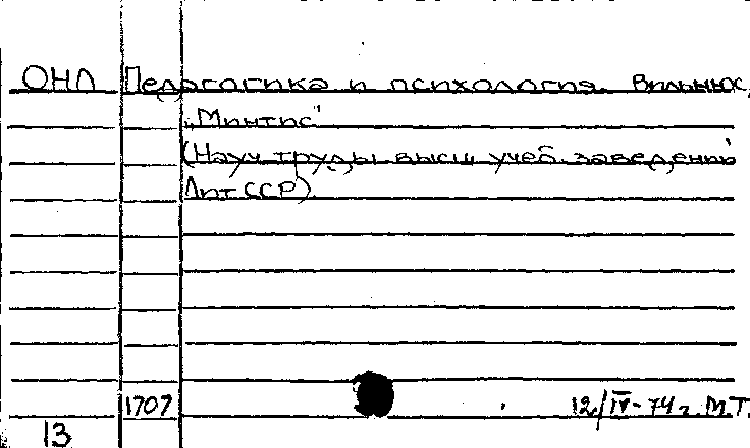 ОНЛ Педагогика и психология. Вильнюс,
„Минтис"
(Науч. труды высш учеб. заведений
Лит ССР).
1707 12/IV-74 г. М.Т.
13